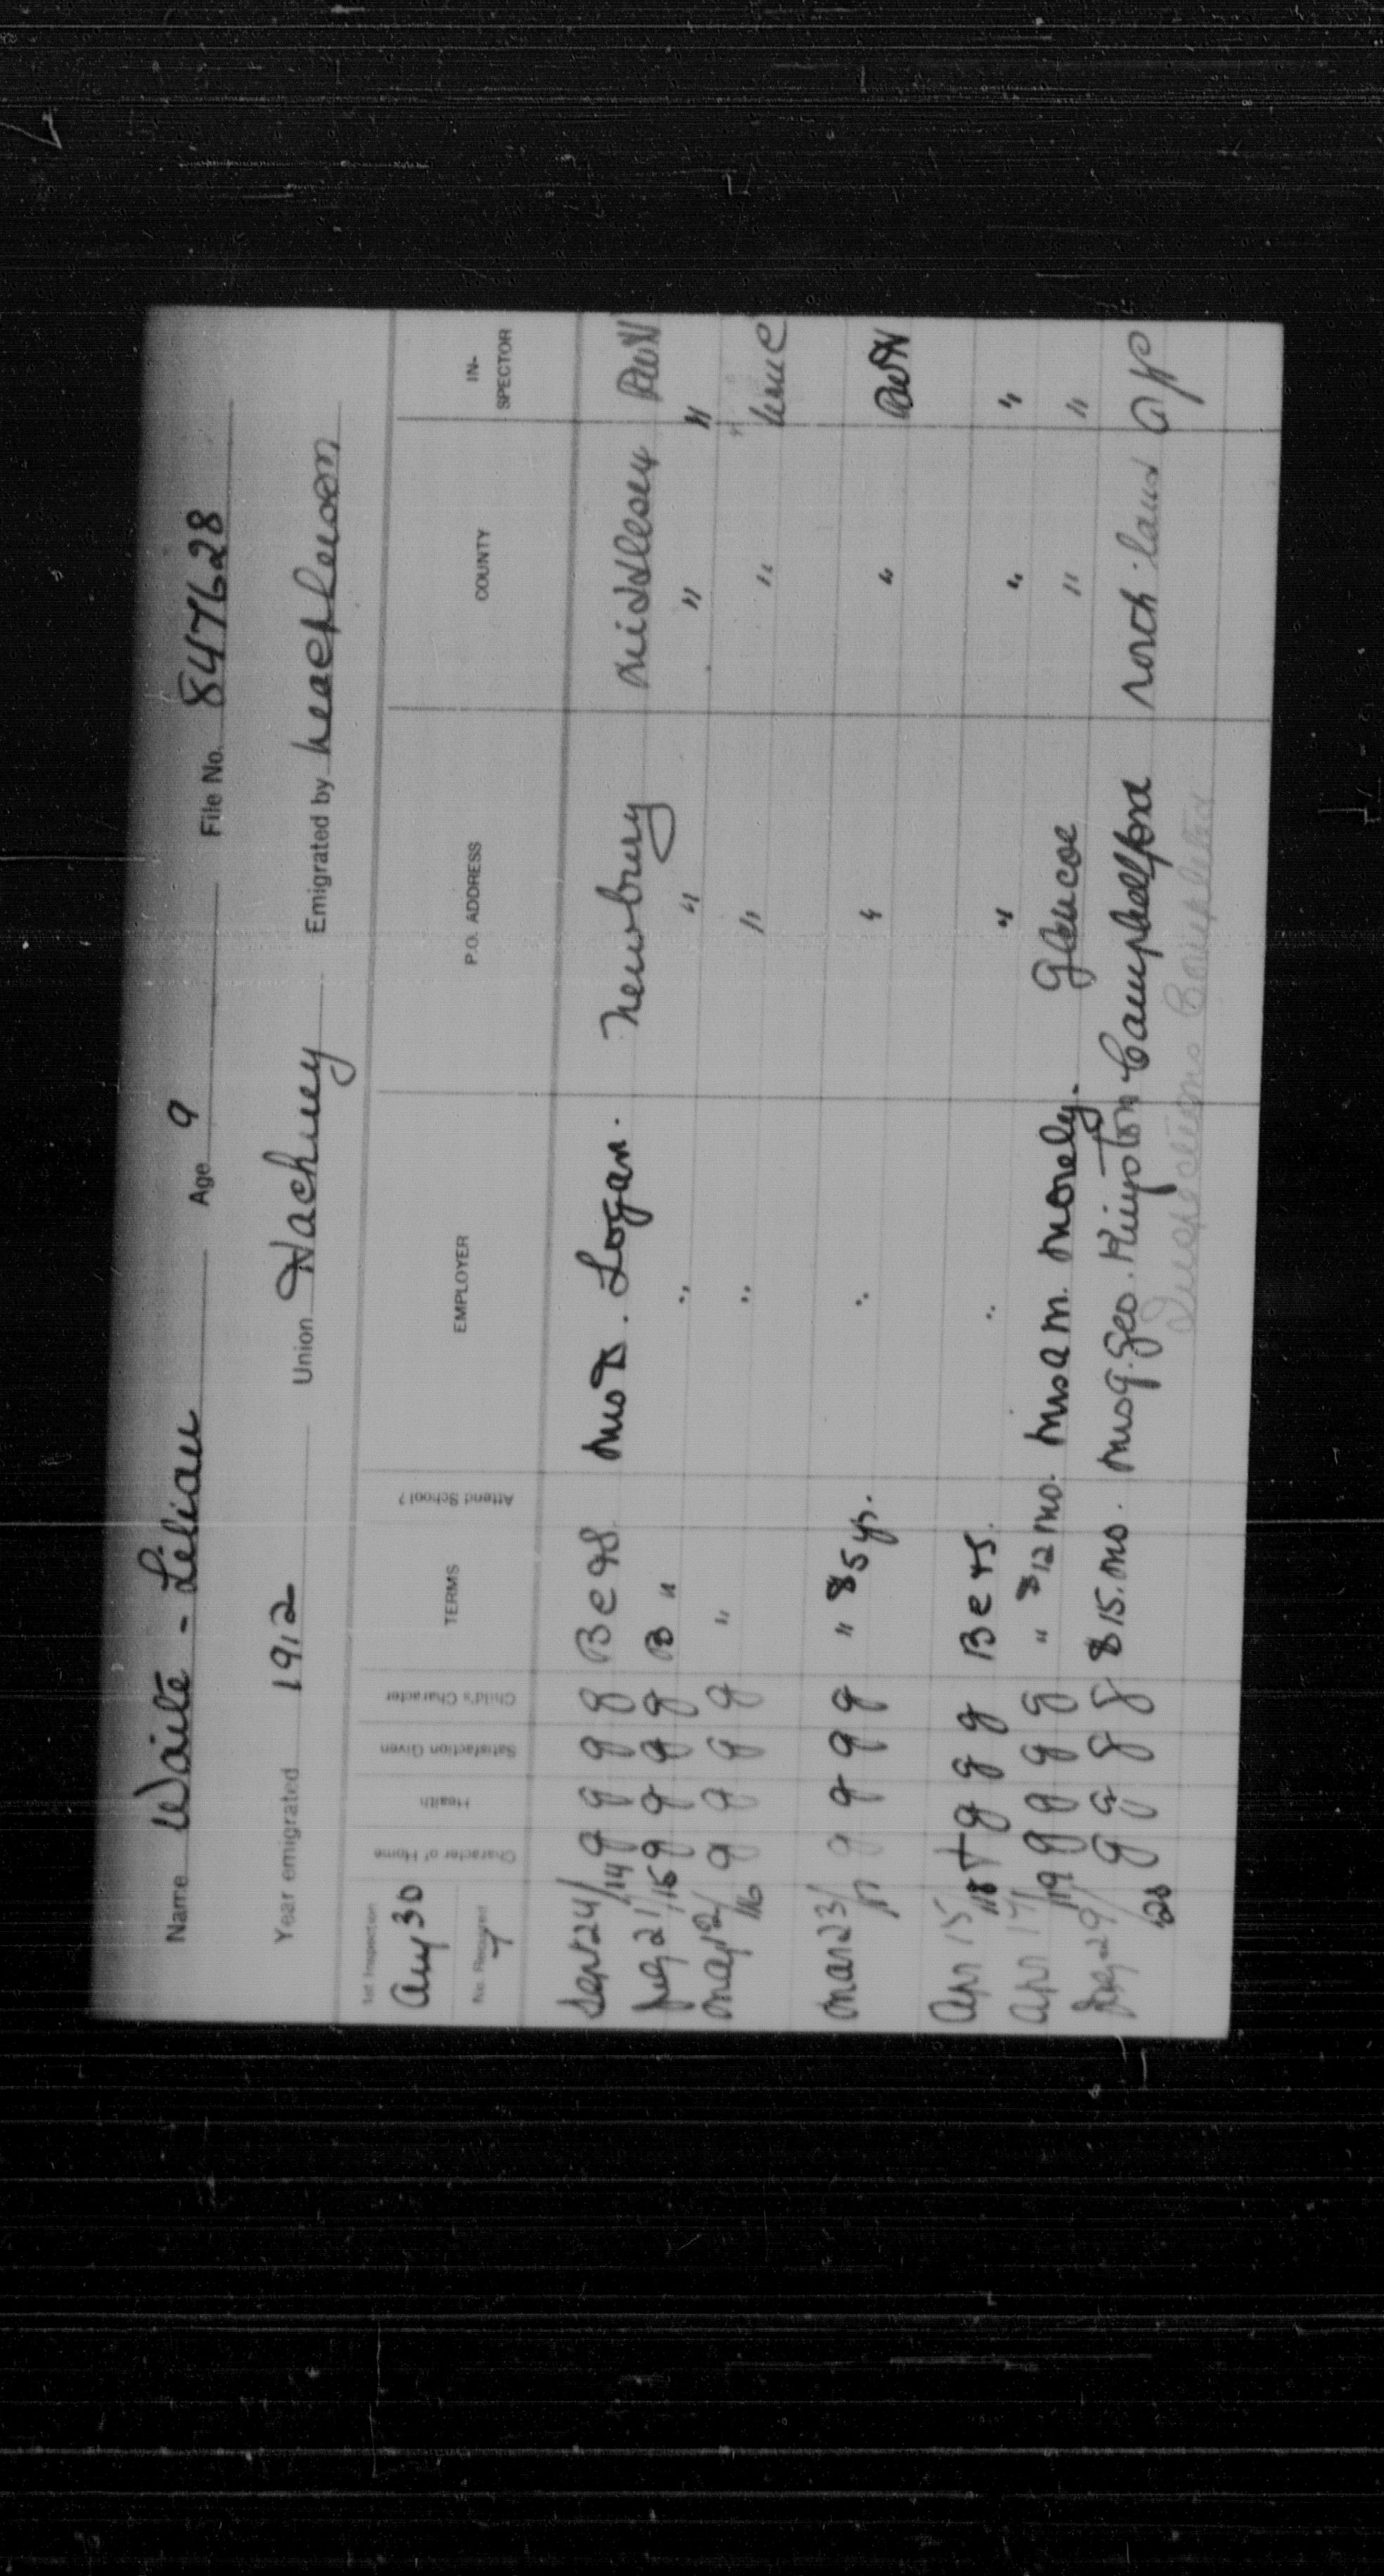 Name Waite - Lilian Age 9 File No. 847628
Year emigrated 1912 Union Hackney Emigrated by
1st Inspection Character of Home Health Satisfaction Given Child's Character TERMS Attend School? EMPLOYER P.O. ADDRESS COUNTY IN-SPECTOR
Aug 30
No. Required
7
Sept 24/14 g g g g B e & S. Mrs D. Logan. Newbury Middlesex
21/15 g g g g B " " " " "
May 12/16 g g g g " " " "
Mar 23/17 g g g g " $5 yr. " " "
Apr 15/18 + g g g B e & S. " " " "
Apr 17/19 g g g g " $12 mo. Mrs A M. Glencoe " "
29/20 g g g g $15. mo. Geo. Kingston Campbellford North. land
Inspections Completed